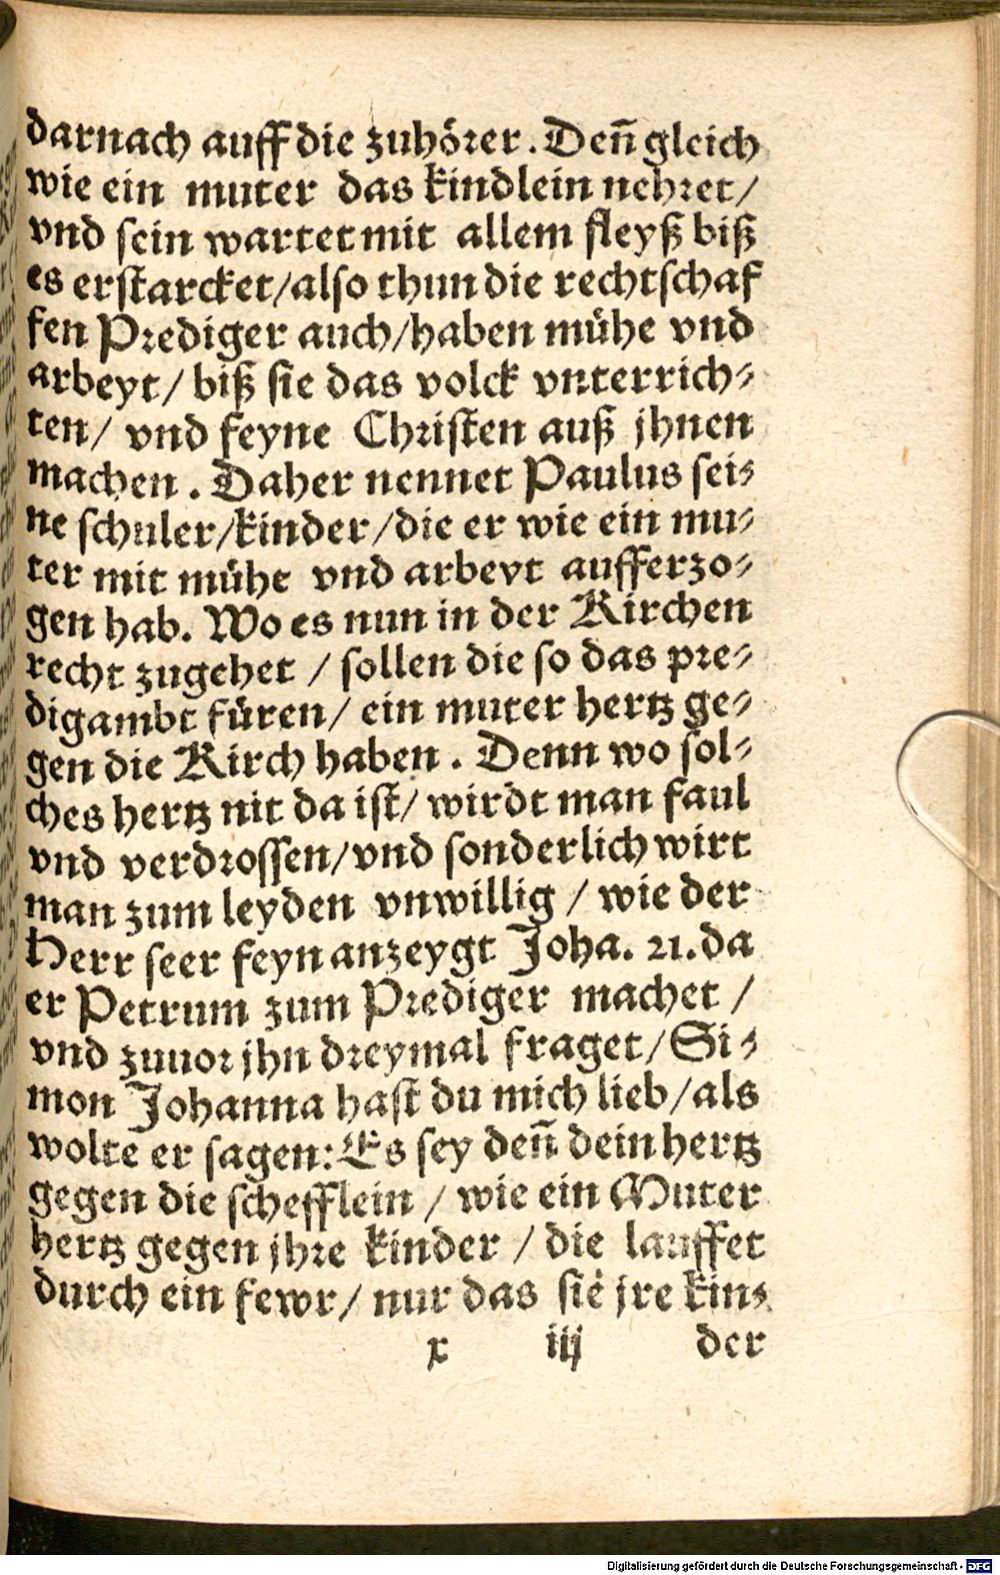 darnach auff die zuhörer. Deñ gleich
wie ein muter das kindlein nehret/
vnd sein wartet mit allem fleyß biß
es erstarcket/also thun die rechtschaf
fen Prediger auch/haben mühe vnd
arbeyt/ biß sie das volck vnterrich⸗
ten/ vnd feyne Christen auß jhnen
machen. Daher nennet Paulus sei⸗
ne schuler/kinder/die er wie ein mu⸗
ter mit mühe vnd arbeyt aufferzo⸗
gen hab. Wo es nun in der Kirchen
recht zugehet / sollen die so das pre⸗
digambt füren/ ein muter hertz ge⸗
gen die Kirch haben. Denn wo sol⸗
ches hertz nit da ist/ wirdt man faul
vnd verdrossen/vnd sonderlich wirt
man zum leyden vnwillig / wie der
Herr seer feyn anzeygt Joha. 21. da
er Petrum zum Prediger machet /
vnd zuuor jhn dreymal fraget/ Si⸗
mon Johanna hast du mich lieb/als
wolte er sagen: Es sey deñ dein hertz
gegen die schefflein / wie ein Muter
hertz gegen jhre kinder / die lauffet
durch ein fewr/ nur das sie jre kin⸗
x iij der
Digitalisierung gefördert durch die Deutsche Forschungsgemeinschaft - DFG